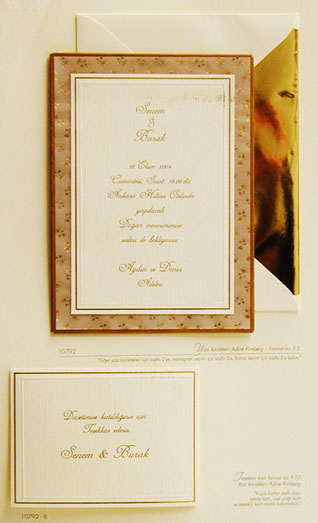 Senem
&
Burak
Ekim 2004
Cumartesi, Saat: 19.00'da
Ankara Hilton Otelinde
yapılacak
Düğün merasimimize
sizleri de bekliyoruz.
Aydın ve Deniz
Aileleri
10792
Yazı karakteri: Adine Kirnberg - format no: F-2
Davetimize katıldığınız için
Teşekkür ederiz.
Senem & Burak
10792 - b
Teşekkür kartı format no: F-13
Yazı karakteri: Adine Kirnberg